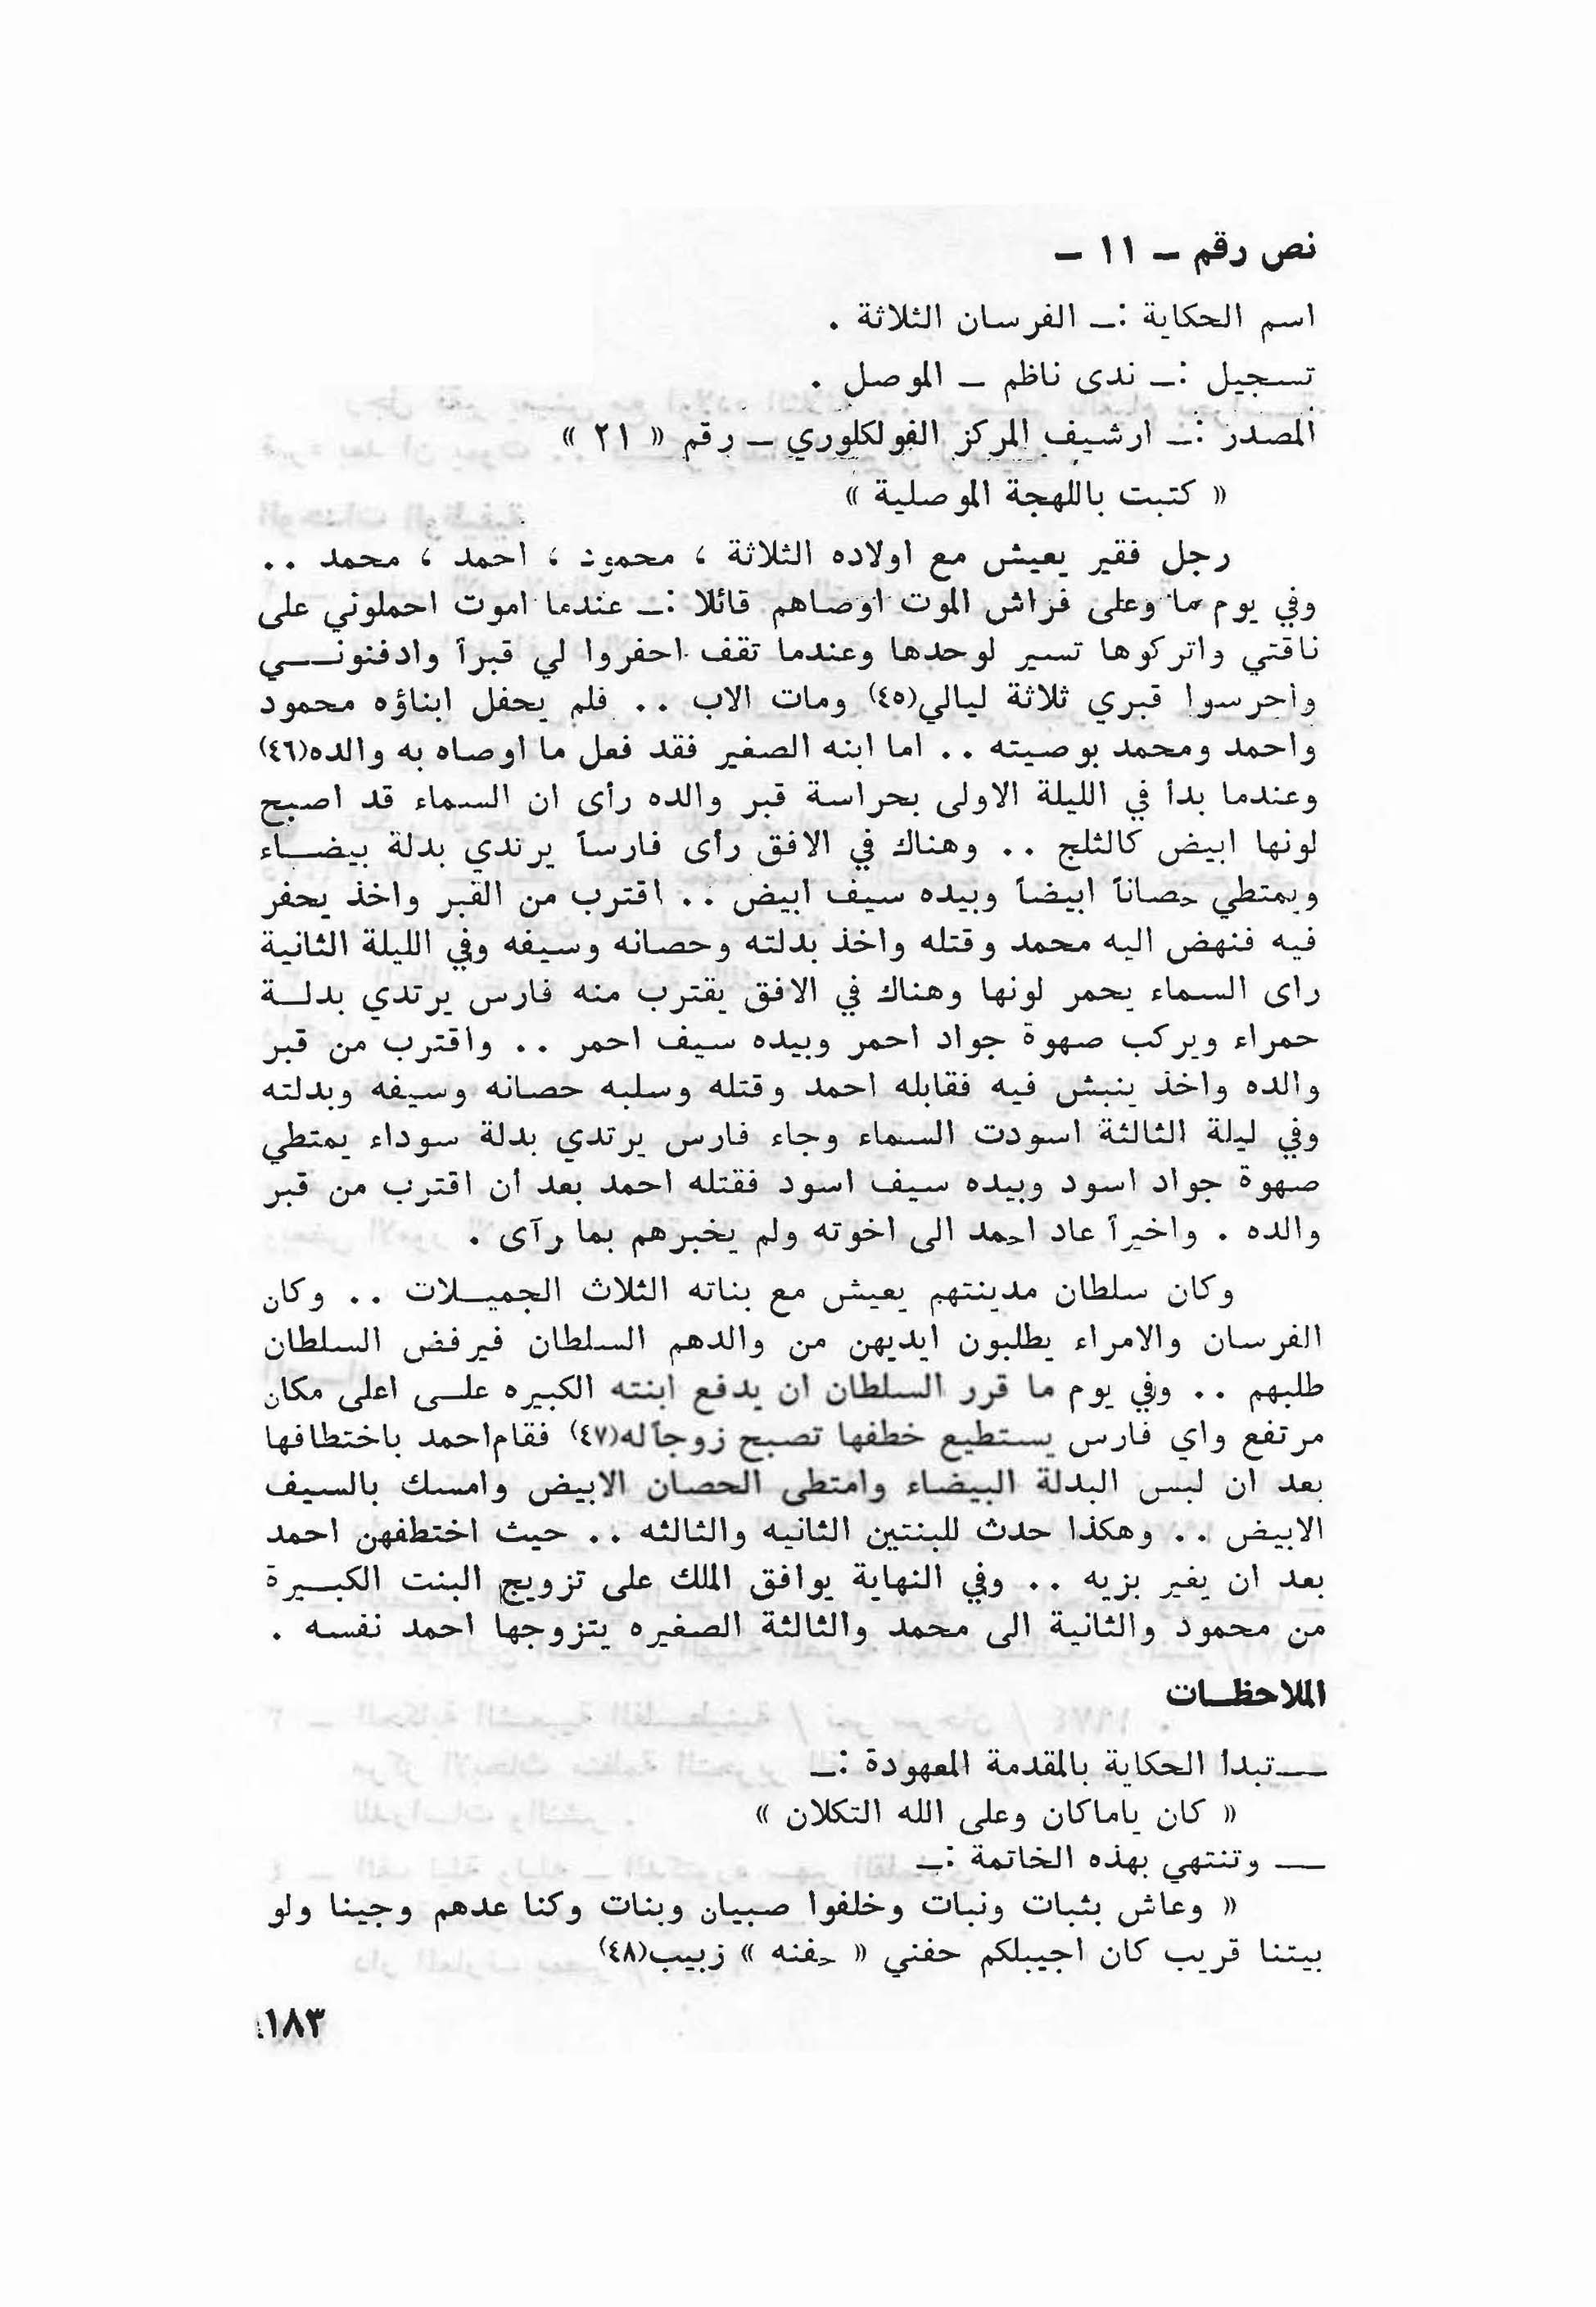 نص رقم – ١١ –
اسم الحكاية :ـ الفرسان الثلاثة .
تسجيل :ـ ندى ناظم – الموصل .
المصدر :ـ ارشيف المركز الفولكلوري – رقم « ٢١ »
« كتبت باللهجة الموصلية »
رجل فقير يعيش مع اولاده الثلاثة ، محمود ، احمد ، محمد . .
وفي يوم ما وعلى فراش الموت اوصاهم قائلا :ـ عندما اموت احملوني على
ناقتي واتركوها تسير لوحدها وعندما تقف احفروا لي قبراً وادفنونــــي
واحرسوا قبري ثلاثة ليالي(٤٥) ومات الاب . . فلم يحفل ابناؤه محمود
واحمد ومحمد بوصيته . . اما ابنه الصغير فقد فعل ما اوصاه به والده(٤٦)
وعندما بدأ في الليلة الاولى بحراسة قبر والده رأى ان السماء قد اصبح
لونها ابيض كالثلج . . وهناك في الافق رأى فارساً يرتدي بدلة بيضــاء
ويمتطي حصاناً ابيضاً وبيده سيف ابيض . . اقترب من القبر واخذ يحفر
فيه فنهض اليه محمد وقتله واخذ بدلته وحصانه وسيفه وفي الليلة الثانية
راى السماء يحمر لونها وهناك في الافق يقترب منه فارس يرتدي بدلــة
حمراء ويركب صهوة جواد احمر وبيده سيف احمر . . واقترب من قبر
والده واخذ ينبش فيه فقابله احمد وقتله وسلبه حصانه وسيفه وبدلته
وفي ليلة الثالثة اسودت السماء وجاء فارس يرتدي بدلة سوداء يمتطي
صهوة جواد اسود وبيده سيف اسود فقتله احمد بعد ان اقترب من قبر
والده . واخيراً عاد احمد الى اخوته ولم يخبرهم بما رآى .
وكان سلطان مدينتهم يعيش مع بناته الثلاث الجميــلات . . وكان
الفرسان والامراء يطلبون ايديهن من والدهم السلطان فيرفض السلطان
طلبهم . . وفي يوم ما قرر السلطان ان يدفع ابنته الكبيره علــى اعلى مكان
مرتفع واي فارس يستطيع خطفها تصبح زوجاً له(٤٧) فقام احمد باختطافها
بعد ان لبس البدلة البيضاء وامتطى الحصان الابيض وامسك بالسيف
الابيض . . وهكذا حدث للبنتين الثانيه والثالثه . . حيث اختطفهن احمد
بعد ان يغير بزيه . . وفي النهاية يوافق الملك على تزويج البنت الكبــيرة
من محمود والثانية الى محمد والثالثة الصغيره يتزوجها احمد نفسه .
الملاحظــات
ــ تبدأ الحكاية بالمقدمة المعهودة :ـ
« كان ياماكان وعلى الله التكلان »
ــ وتنتهي بهذه الخاتمة :ـ
« وعاش بثبات ونبات وخلفوا صبيان وبنات وكنا عدهم وجينا ولو
بيتنا قريب كان اجيبلكم حفني « حفنه » زبيب(٤٨)
١٨٣